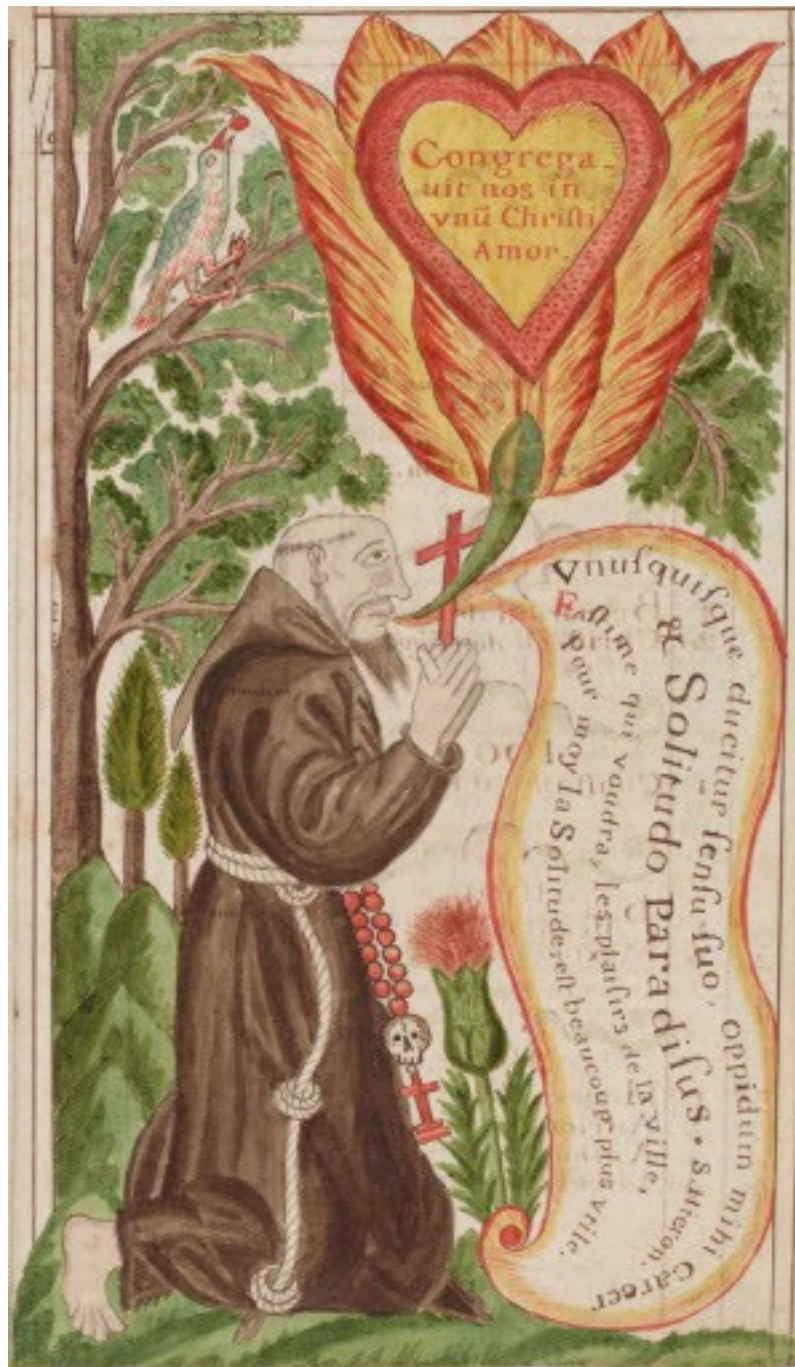 Congrega-
uit nos in
vnū Chriſti
Amor.
Vnuſquiſque ducitur ſenſu ſuo, oppidum mihi Carcer
& Solitudo Paradiſus. S. Hieron.
Eſtime qui voudra, les plaiſirs de la ville,
pour moy la Solitude, eſt beaucoup plus vtile.